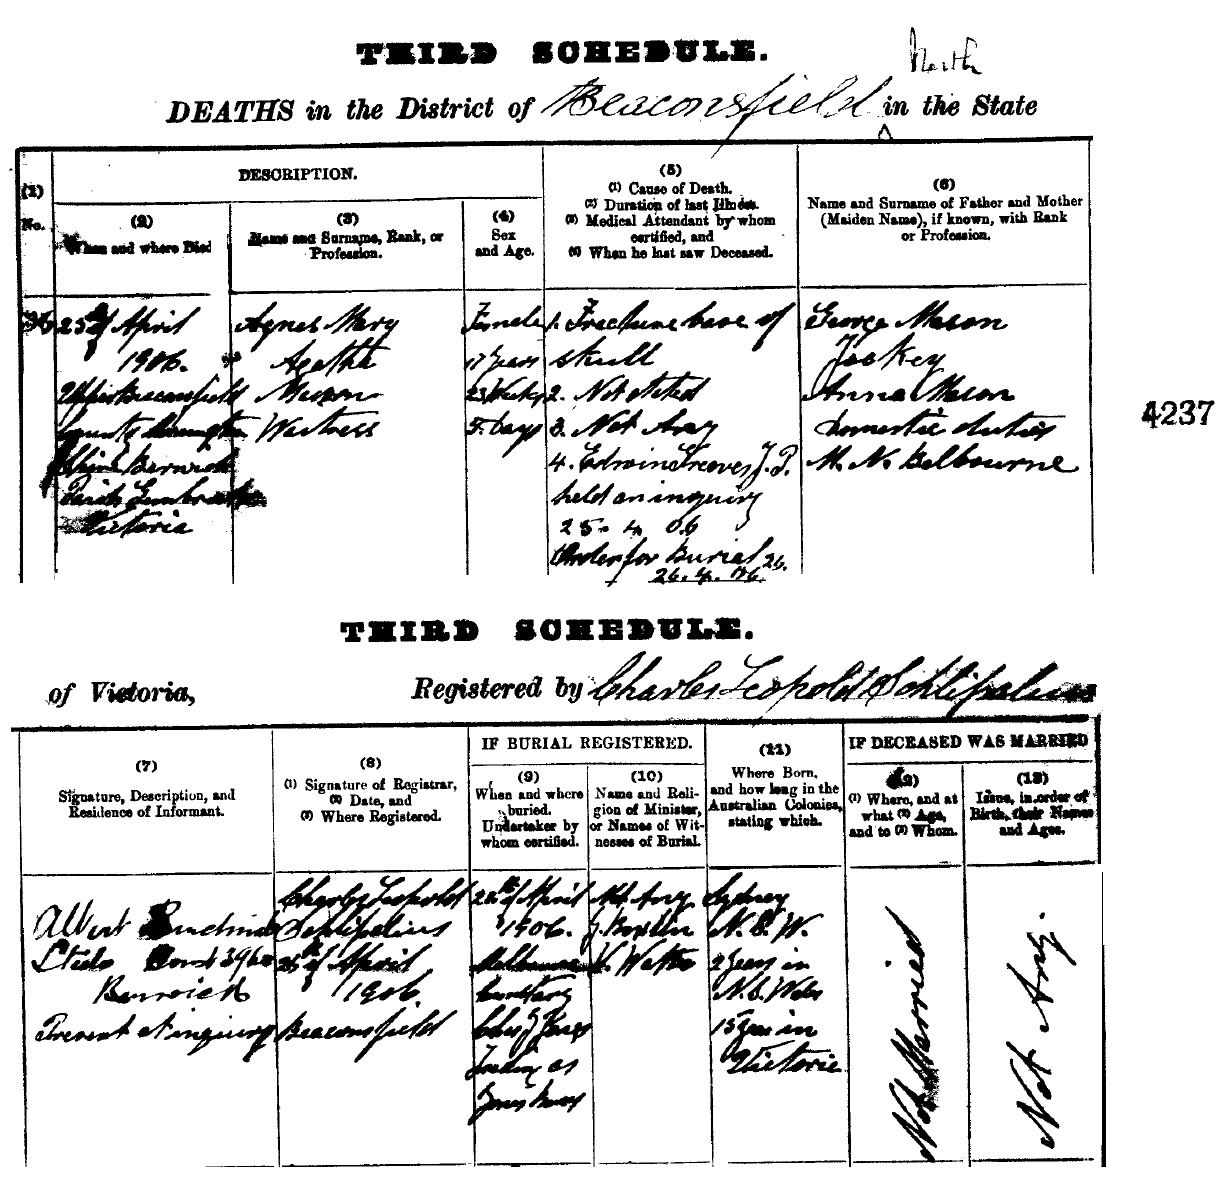 THIRD SCHEDULE.
North
DEATHS in the District of Beaconsfield in the State
(1)
No.
DESCRIPTION.
(2)
When and where Died
(3)
Name and Surname, Rank, or
Profession.
(4)
Sex
and Age.
(5)
(1) Cause of Death.
(2) Duration of last Illness.
(3) Medical Attendant by whom
certified, and
(4) When he last saw Deceased.
(6)
Name and Surname of Father and Mother
(Maiden Name), if known, with Rank
or Profession.
25th of April
1906.
Upper Beaconsfield
County Mornington
Shire Berwick
Parish Gembrook
Victoria
Agnes Mary
Agatha
Mason
Waitress
Female
17 Years
23 Weeks
5. Days
1. Fracture base of
skull
2. Not stated
3. Not Any
4. Edwin Greaves J.P.
held an inquiry
25. 4 06
Order for Burial 26.
26. 4. 06.
George Mason
Jockey
Anna Mason
Domestic duties
M. N. Belbourne
4237
THIRD SCHEDULE.
of Victoria, Registered by Charles Leopold Schlipalius
(7)
Signature, Description, and
Residence of Informant.
(8)
(1) Signature of Registrar,
(2) Date, and
(3) Where Registered.
IF BURIAL REGISTERED.
(9)
When and where
buried.
Undertaker by
whom certified.
(10)
Name and Reli-
gion of Minister,
or Names of Wit-
nesses of Burial.
(11)
Where Born,
and how long in the
Australian Colonies,
stating which.
IF DECEASED WAS MARRIED
(12)
(1) Where, and at
what (2) Age,
and to (3) Whom.
(13)
Issue, in order of
Birth, their Names
and Ages.
Albert
Const 3960
Berwick
Present at inquiry
Charles Leopold
Schlipalius
of April
1906.
Beaconsfield
of April
1906.
Melbourne
Cemetery
Jones
Trading as
Jones
Not Any
J. Boxlin
Watts
Sydney
N.S.W.
2 Years in
N.S. Wales
15 Years in
Victoria
Not Married
Not Any.